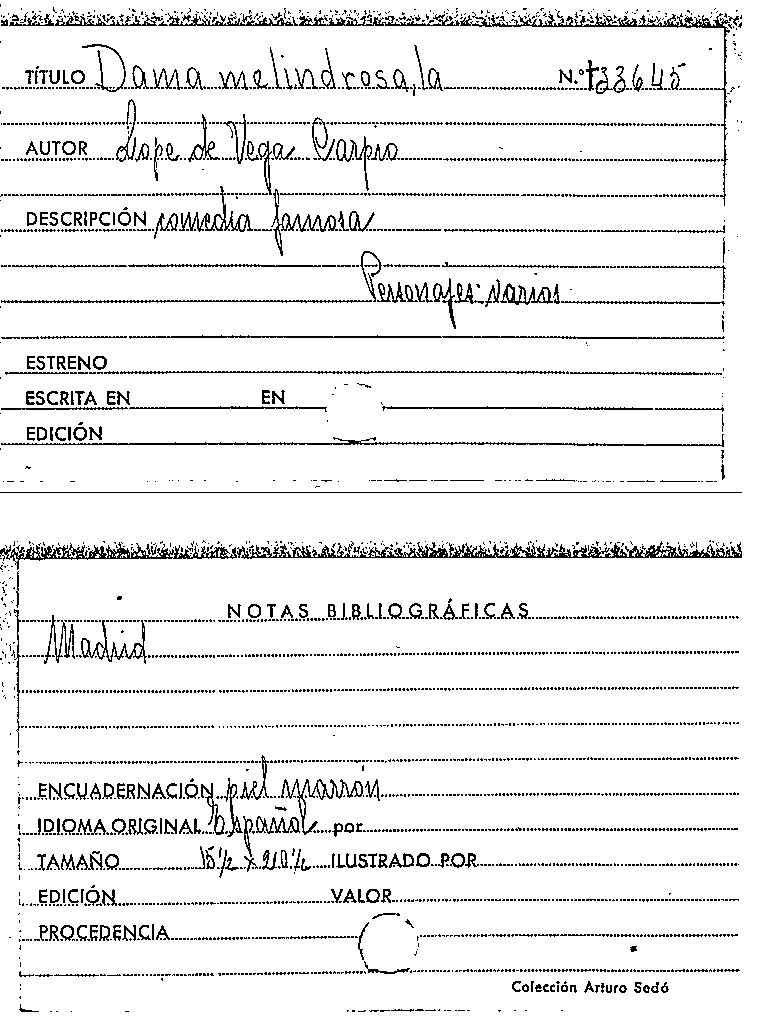 TÍTULO Dama melindrosa, la N.º 133645
AUTOR Lope de Vega Carpio
DESCRIPCIÓN comedia famosa
Personajes: varios
ESTRENO
ESCRITA EN EN
EDICIÓN
NOTAS BIBLIOGRÁFICAS
Madrid
ENCUADERNACIÓN piel marrón
IDIOMA ORIGINAL Español por
TAMAÑO 15½ x 20½ ILUSTRADO POR
EDICIÓN VALOR
PROCEDENCIA
Colección Arturo Sedó